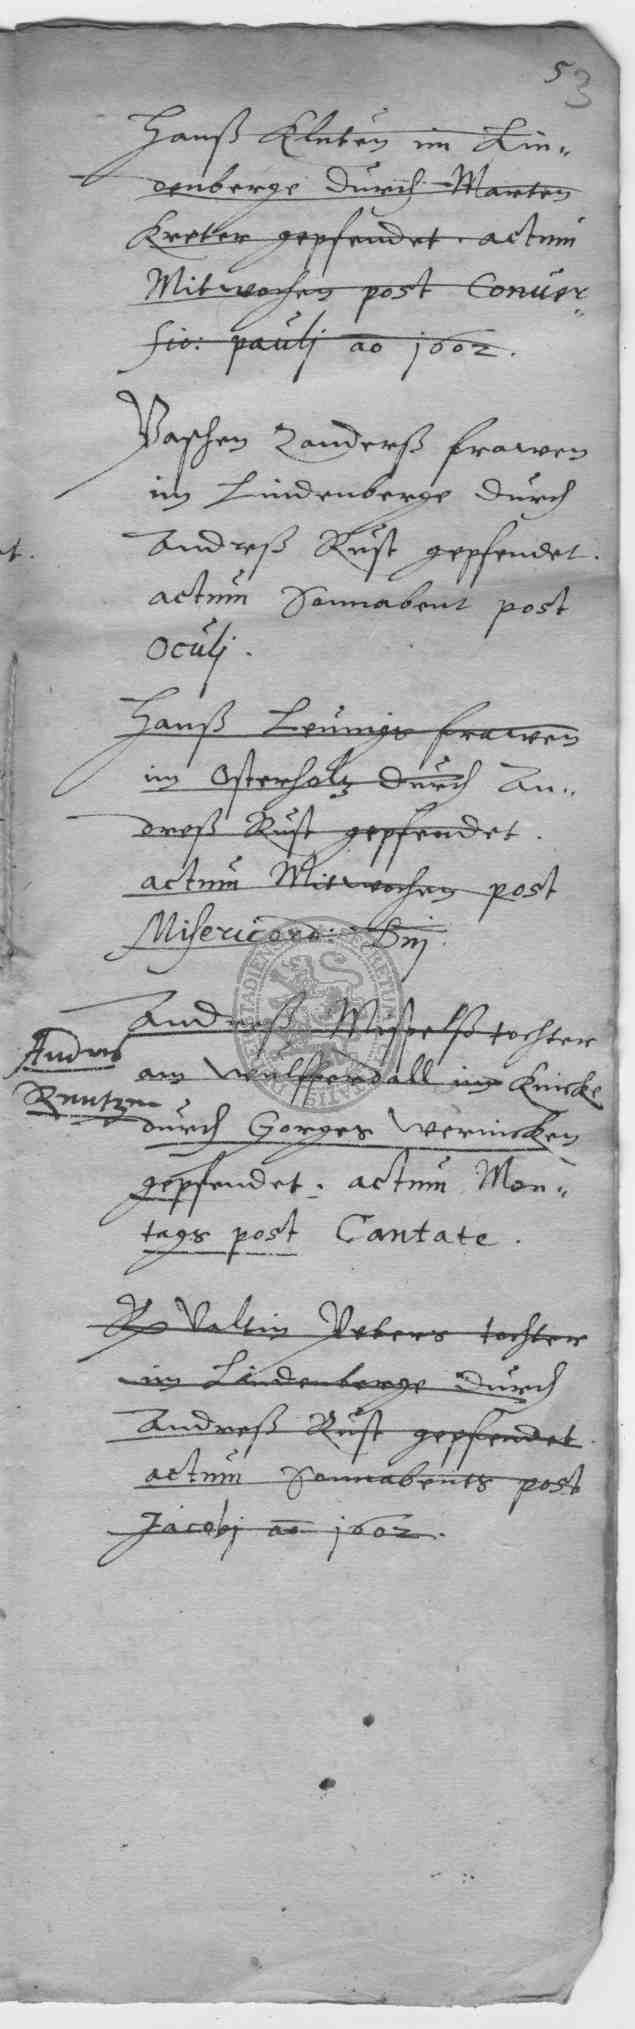 53
Hanß Kluten im Lin„
denberge durch Marten
Kreter gepfendet. actum
Mitwochen post Conuer„
sio: paulj ao 1602.
Paschen Zanderß frawen
im Lindenberge durch
Andreß Rust gepfendet.
actum Sonnabent post
Oculj.
Hanß Leunigs frawen
im Osterholtz durch An„
dreß Rust gepfendet.
actum Mitwochen post
Misericord: Dnj.
Andreß tochter
Andres
am wulfferdall im Knicke
durch Gorges wernicken
gepfendet. actum Mon„
tags post Cantate.
Valtin tochter
im Lindenberge durch
Andreß Rust gepfendet
actum Sonnabents post
Jacobj ao 1602.